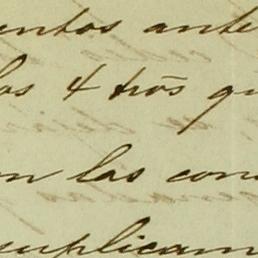 entos ante
los 4 trōs qu
on las con
suplicam